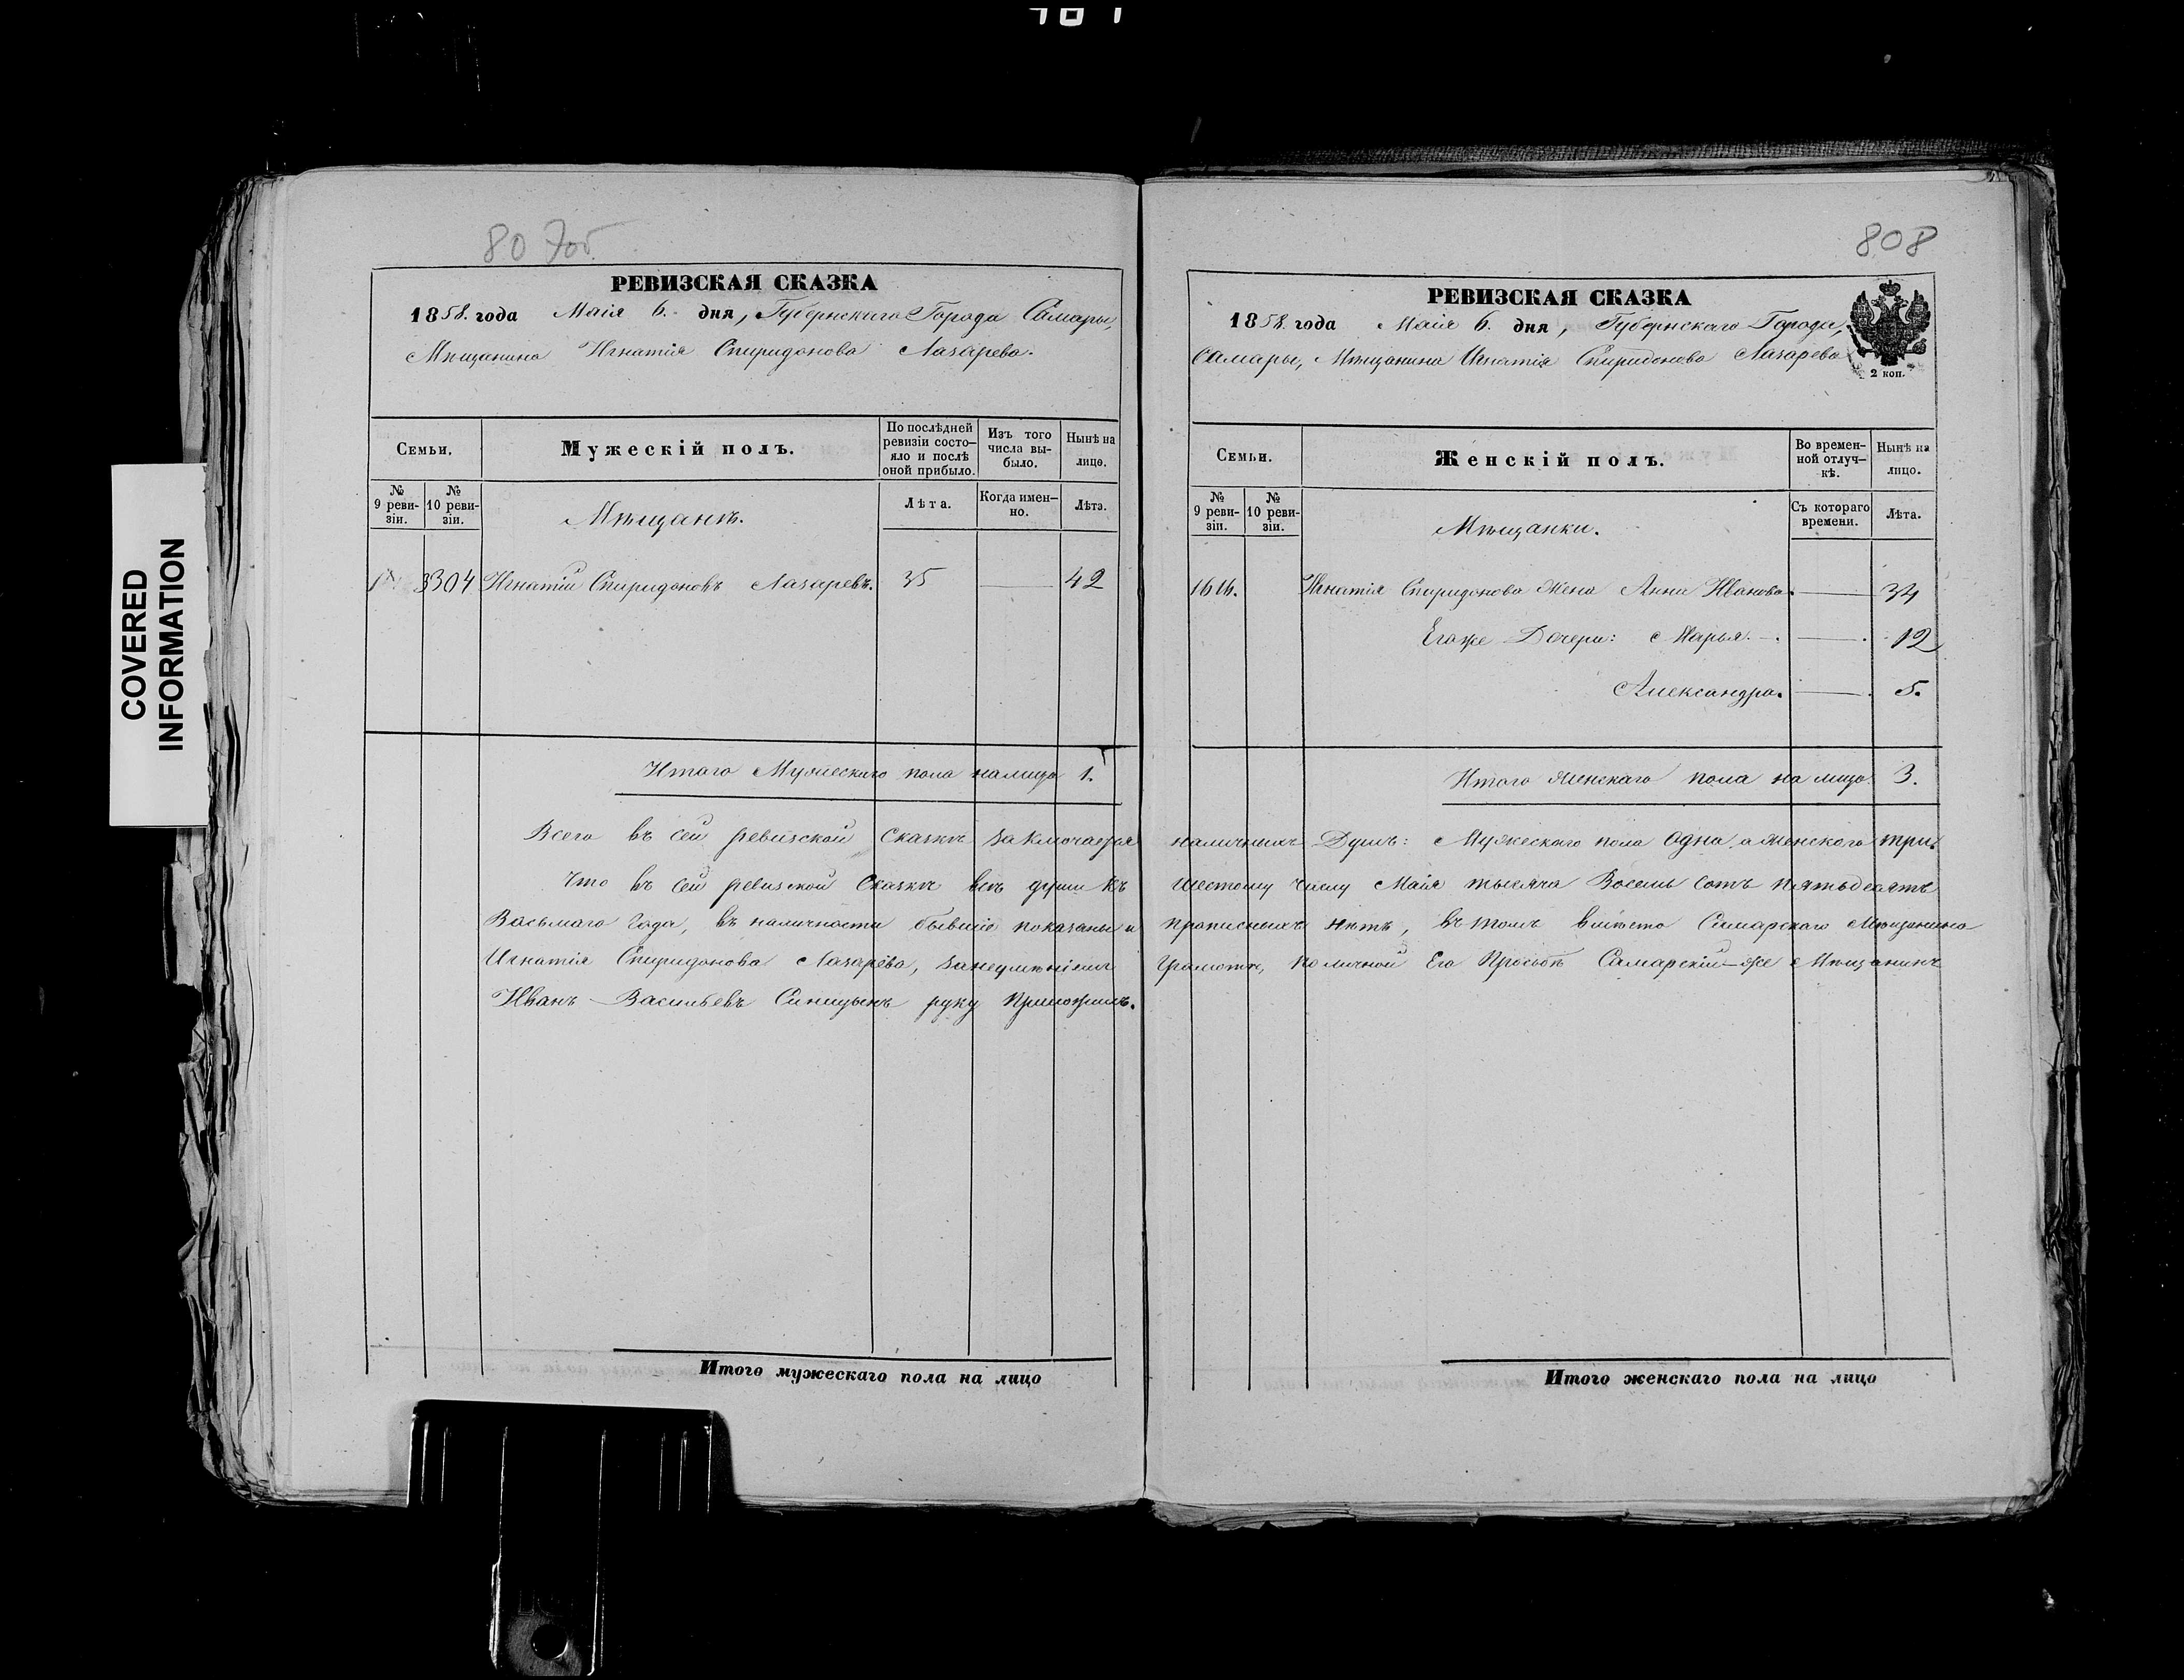 807об
РЕВИЗСКАЯ СКАЗКА
1858. года Маія 6. дня, Губернскаго Города Самары,
Мѣщанина Игнатія Спиридонова Лазарева.
Семьи.
Мужескій полъ.
По послѣдней ревизіи состо-
яло и послѣ оной прибыло.
Изъ того числа вы-
было.
Нынѣ на лицо.
№ 9 реви-
зіи.
№ 10 реви-
зіи.
Мѣщанъ.
Лѣта.
Когда имен-
но.
Лѣта.
3304 Игнатій Спиридоновъ Лазаревъ. 35 42
Итого Мужескаго пола налицо 1.
Всего въ сей ревизской Сказкѣ заключается
Что въ сей ревизской Сказкѣ всѣ души къ
Восьмаго Года, въ наличности бывшіе показаны и
Игнатія Спиридонова Лазарева, занеумѣніемъ
Иванъ Васильевъ Синицынъ руку приложилъ.
Итого мужескаго пола на лицо
808
РЕВИЗСКАЯ СКАЗКА
1858. года Маія 6. дня, Губернскаго Города,
Самары, Мѣщанина Игнатія Спиридонова Лазарева
2 коп.
Семьи.
Женскій полъ.
Во времен-
ной отлуч-
кѣ.
Нынѣ на лицо.
№ 9 реви-
зіи.
№ 10 реви-
зіи.
Мѣщанки.
Съ котораго времени.
Лѣта.
1616. Игнатія Спиридонова Жена Анна Иванова. 34
Егоже Дочери: Марья. 12
Александра. 5.
Итого Женскаго пола на лицо 3.
наличныхъ Душъ: Мужескаго пола Одна, а Женскаго три.
шестому числу Маія тысяча Восемь сотъ пятьдесятъ
прописныхъ нѣтъ, въ томъ вмѣсто Самарскаго Мѣщанина
Грамотѣ, по личной Его Просьбѣ Самарскій-же Мѣщанинъ
Итого женскаго пола на лицо
COVERED
INFORMATION